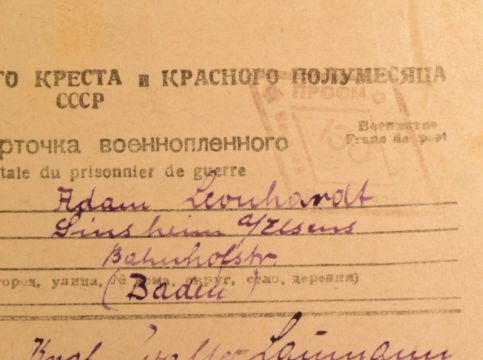 ГО КРЕСТА и КРАСНОГО ПОЛУМЕСЯЦА
СССР
ПРОСМ
Бесплатно
рточка военнопленного
Franc de port
tale du prisonnier de guerre
Adam Leonhardt
Sinsheim a/Elsenz
Bahnhofstr.
город, улица, № дома, округ, село, деревня)
(Baden)
Walter Laumann